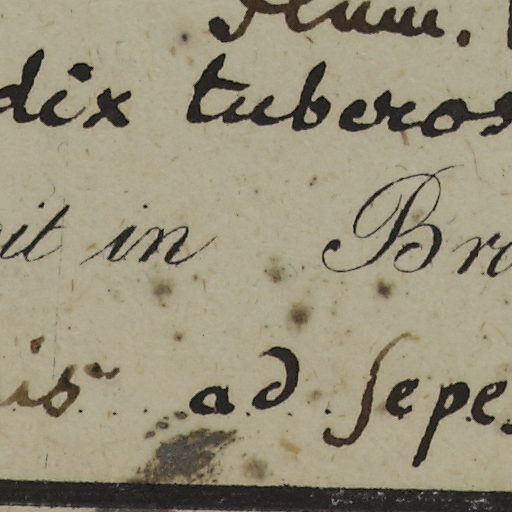 dix tuberos
it in Bra
is ad sepes